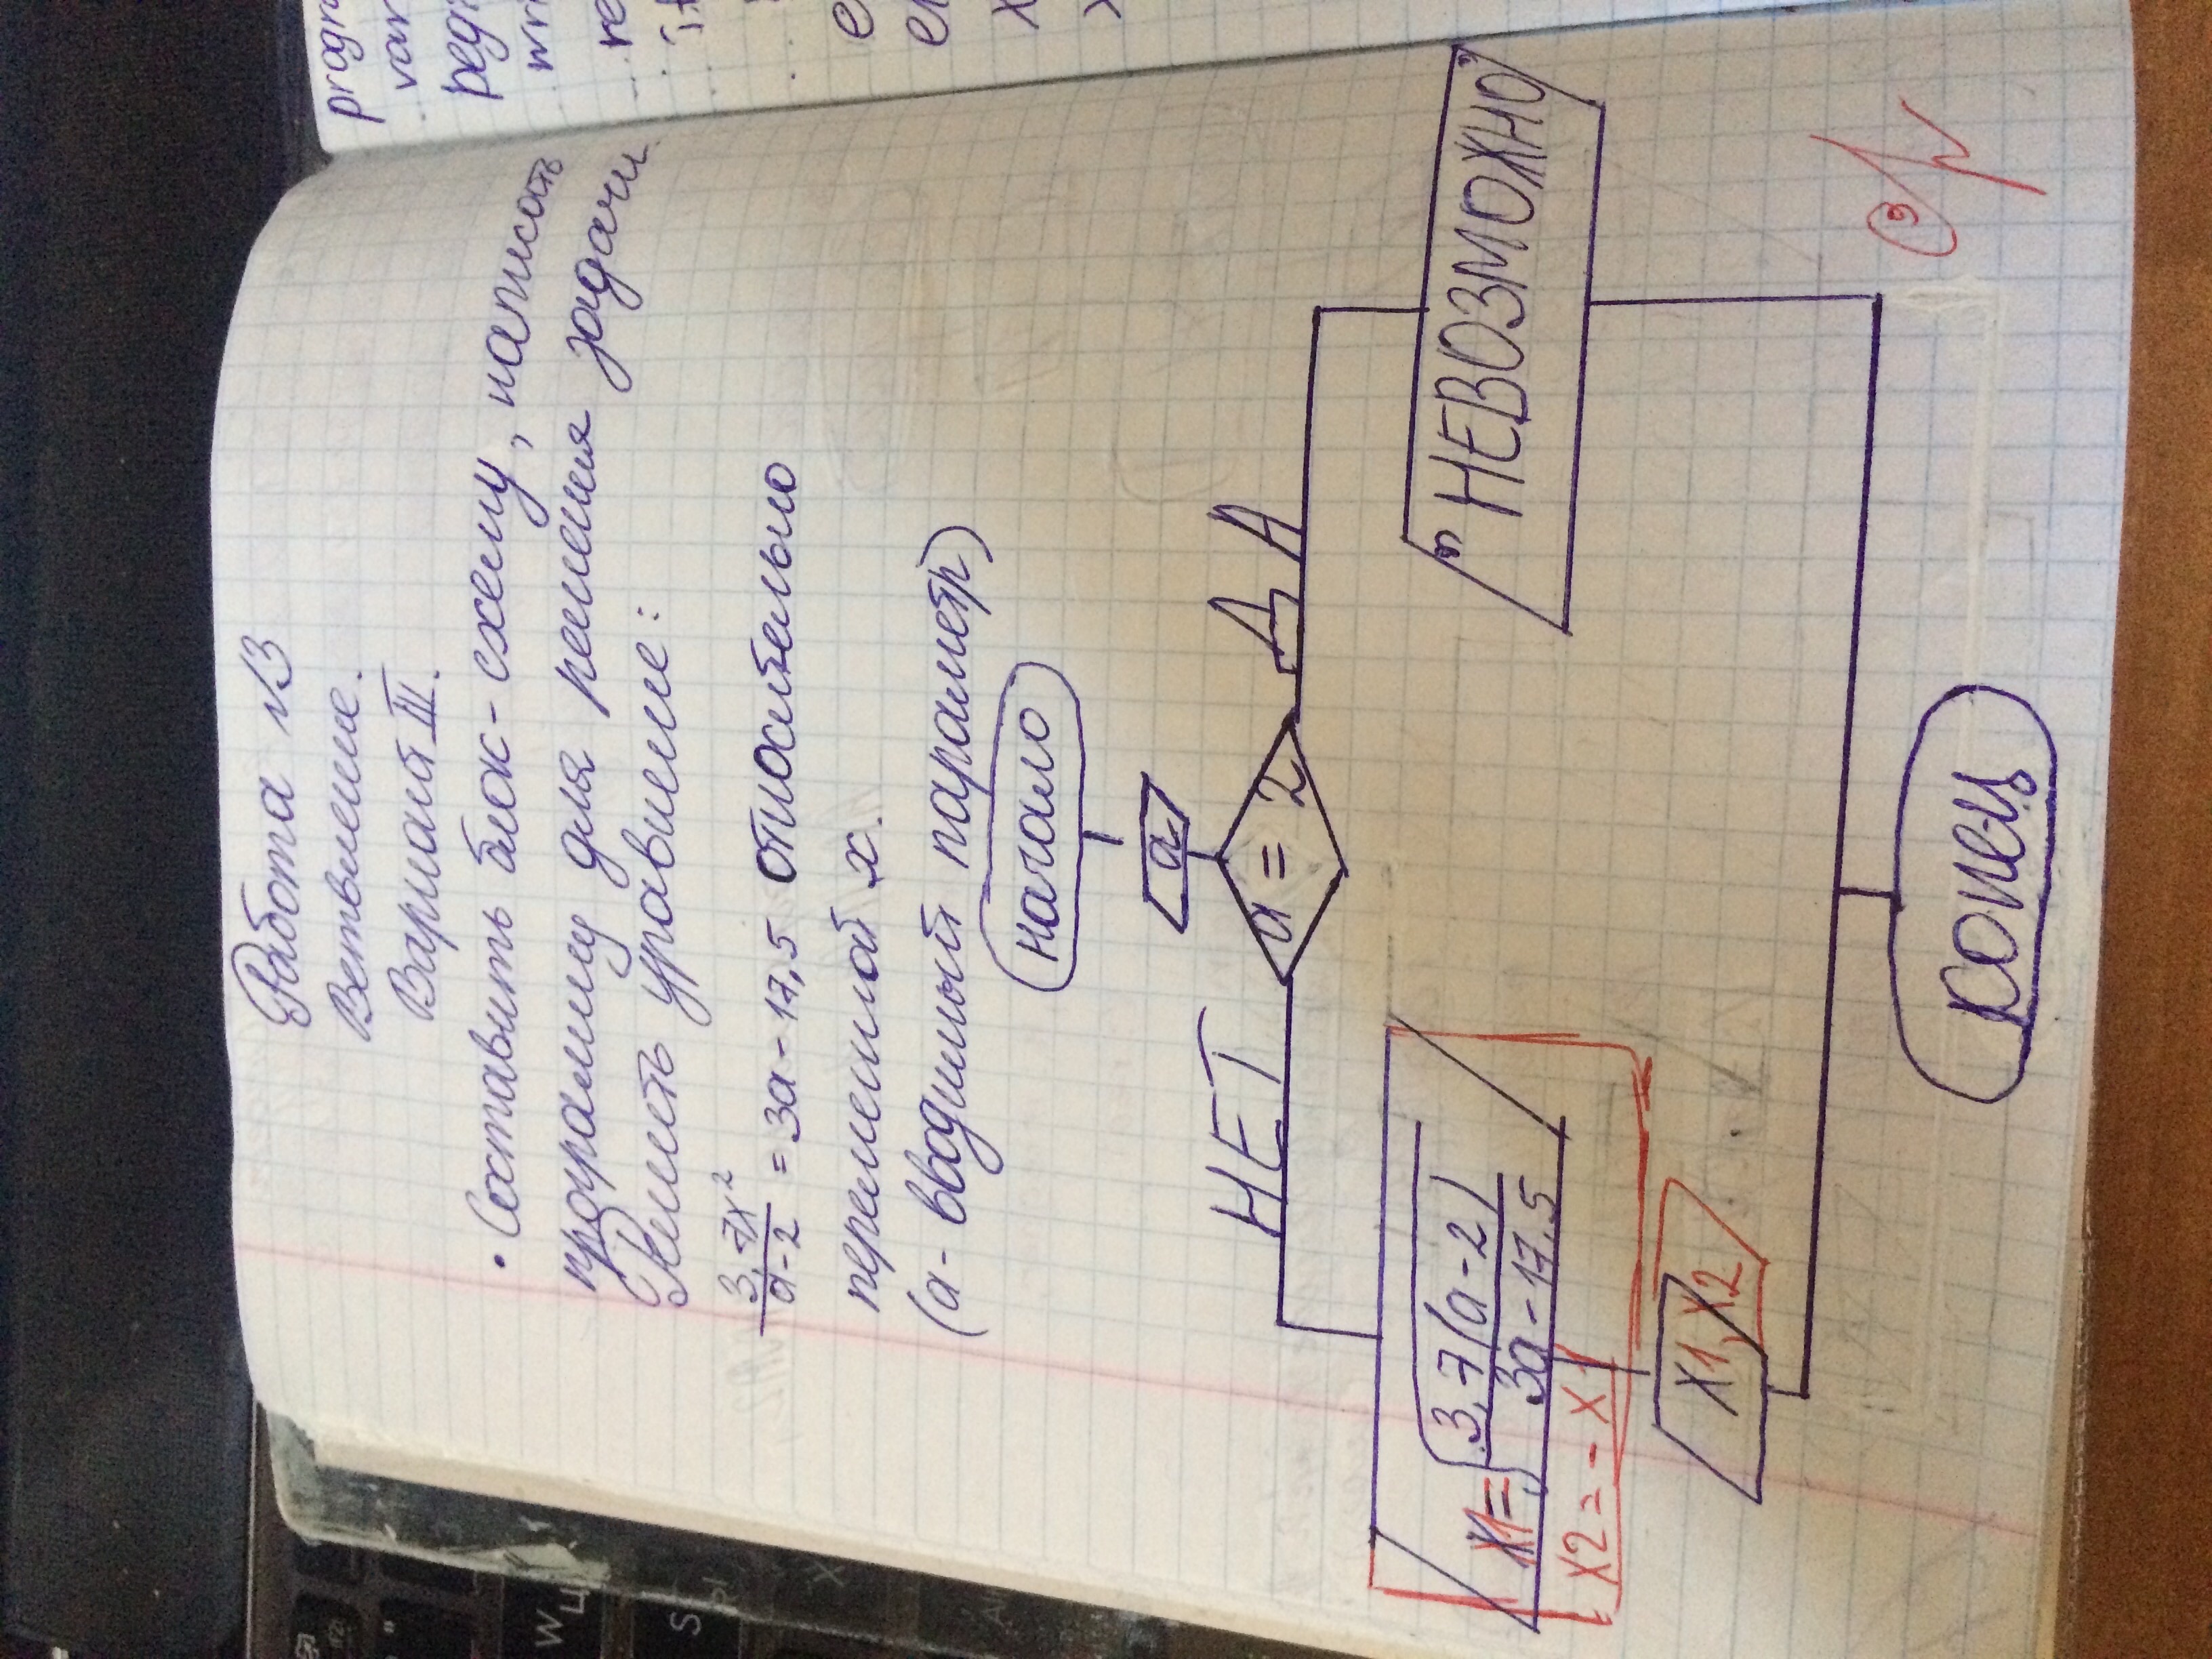 Работа №3
Ветвление.
Вариант III.
• Составить блок-схему, написать
программу для решения задачи.
Решить уравнение:
3,7x²
a-2
= 3a-17,5 относительно
переменной x.
(a-вводимый параметр)
начало
a
a = 2
НЕТ
ДА
x1= 3,7(a-2)
3a-17,5
x2 = -x1
"НЕВОЗМОЖНО"
x1, x2
конец
3
progr
var
begi
wri
re
if
e
x
W
Ц
S
Ы
X